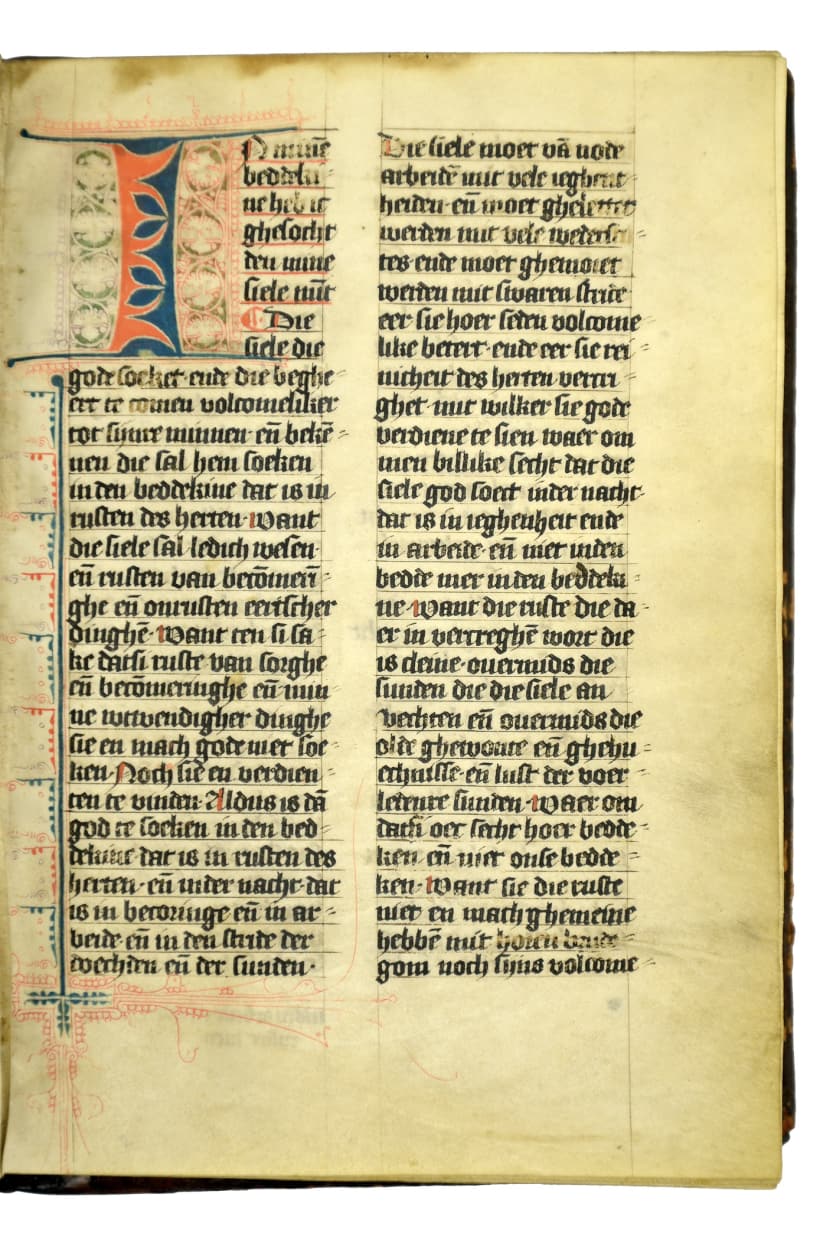 IN minē
beddeki-
ne heb ic
ghesocht
den mine
siele mīt
Die
siele die
gode soeket· ende die beghe-
ert te comen volcomeliker
tot sijnre minnen· eñ bekē-
nen die sal hem soeken
in den beddekine dat is in
rusten des herten· Want
die siele sal ledich wesen·
eñ rusten van becōmerī-
ghe eñ onrusten eertscher
dinghē· Want ten si sa-
ke datsi ruste van sorghe
eñ becōmeringhe eñ min-
ne wtwendigher dinghe
sie en mach gode niet soe-
ken· Noch sie en verdien-
ten te vinden· Aldus is dā
god te soeken in den bed-
dekine dat is in rusten des
herten· eñ in der nacht· dat
is in becoringe eñ in ar-
beide· eñ in den stride der
doechden eñ der sunden·
Die siele moet vā node
arbeidē mit vele ieghent-
heiden· eñ moet ghelettet
werden mit vele wederst-
tes ende moet ghemoiet
werden mit swaren stride·
eer sie hoer seden volcome-
like betert· ende eer sie rei-
nicheit des herten vercri-
ghet· mit wilker sie gode
verdiene te sien· waer om
men billike secht dat die
siele god soect inder nacht·
dat is in ieghenheit ende
in arbeide· eñ niet inden
bedde mer inden beddeki-
ne· Want die ruste die da-
er in vercreghē wort die
is cleine· ouermids die
sunden die die siele an
vechten eñ ouermids die
olde ghewonte eñ ghehu-
echnisse· eñ lust der voer-
ledenre sunden· Waer om
datsi oec secht hoer bedde-
ken eñ niet onse bedde-
ken· Want sie die ruste
niet en mach ghemeine
hebbē mit horen brude-
gom noch sijns volcome-